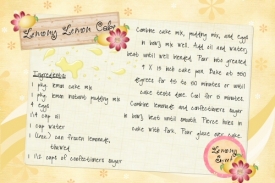 Lemony Lemon Cake
Ingredients:
1 pkg lemon cake mix
1 pkg lemon instant pudding mix
4 eggs
1/4 cup oil
1 cup water
1 (6oz.) can frozen lemonade,
thawed
1 1/2 cups of confectioners sugar
Combine cake mix, pudding mix, and eggs
in bowl, mix well. Add oil and water,
beat until well blended. Pour into greased
9 x 13 inch cake pan. Bake at 350
degrees for 45 to 60 minutes or until
cake tests done. Cool for 15 minutes.
Combine lemonade and confectioners sugar
in bowl, beat until smooth. Pierce holes in
cake with fork. Pour glaze over cake.
Lemony
Sweet